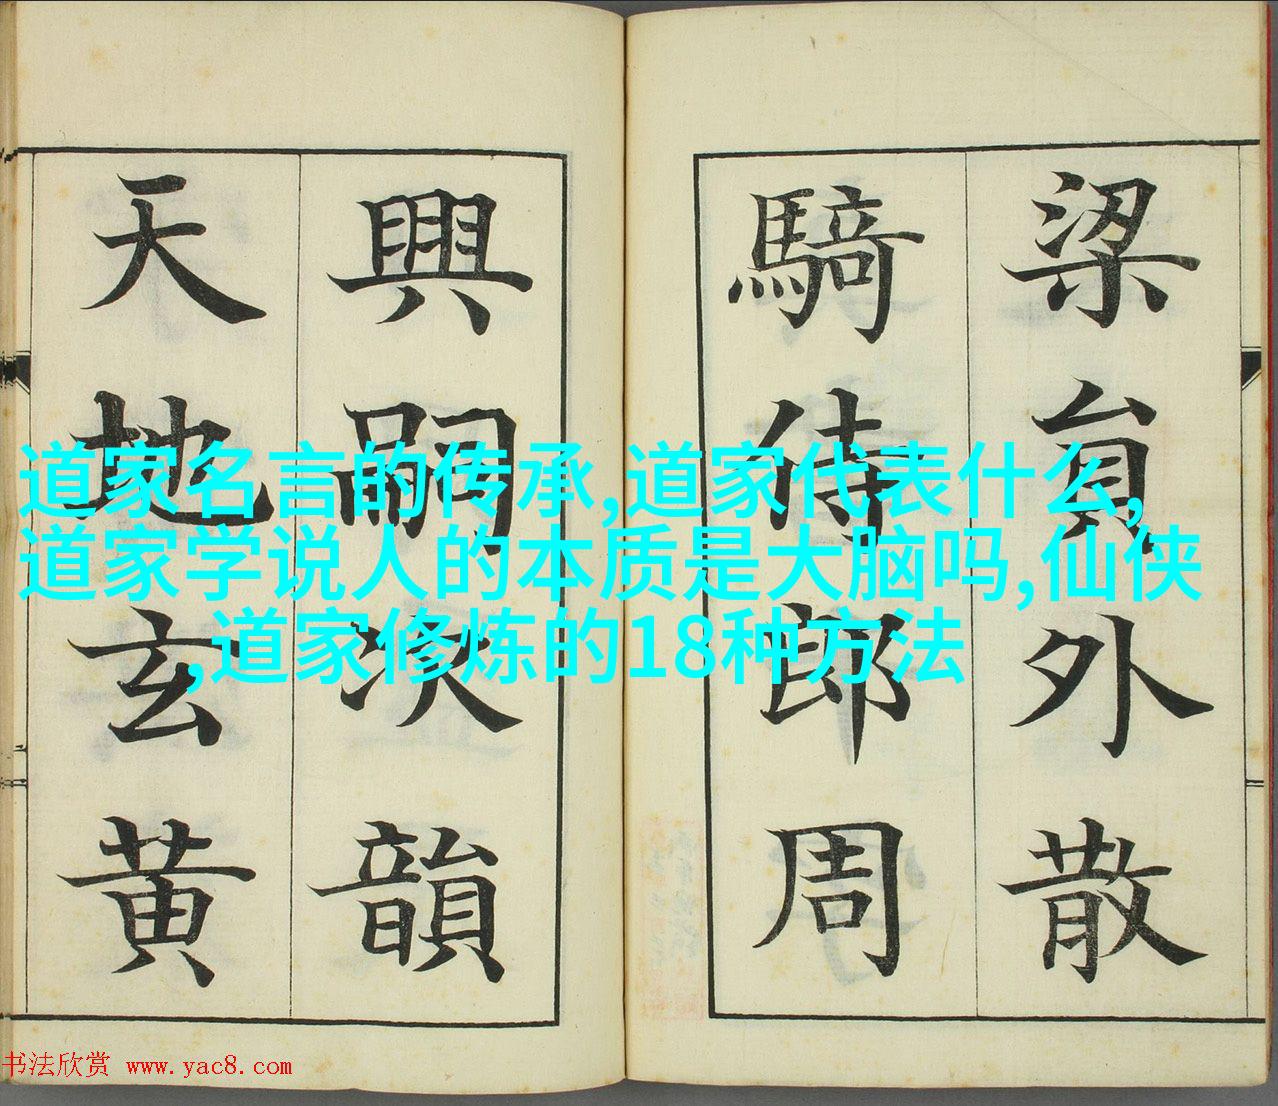 梁員外散
騎侍郎周
興嗣次韻
天地玄黃
道家名言的传承,道家代表什么,
道家学说人的本质是大脑吗,仙侠
,道家修炼的18种方法
书法欣赏 www.yac8.com